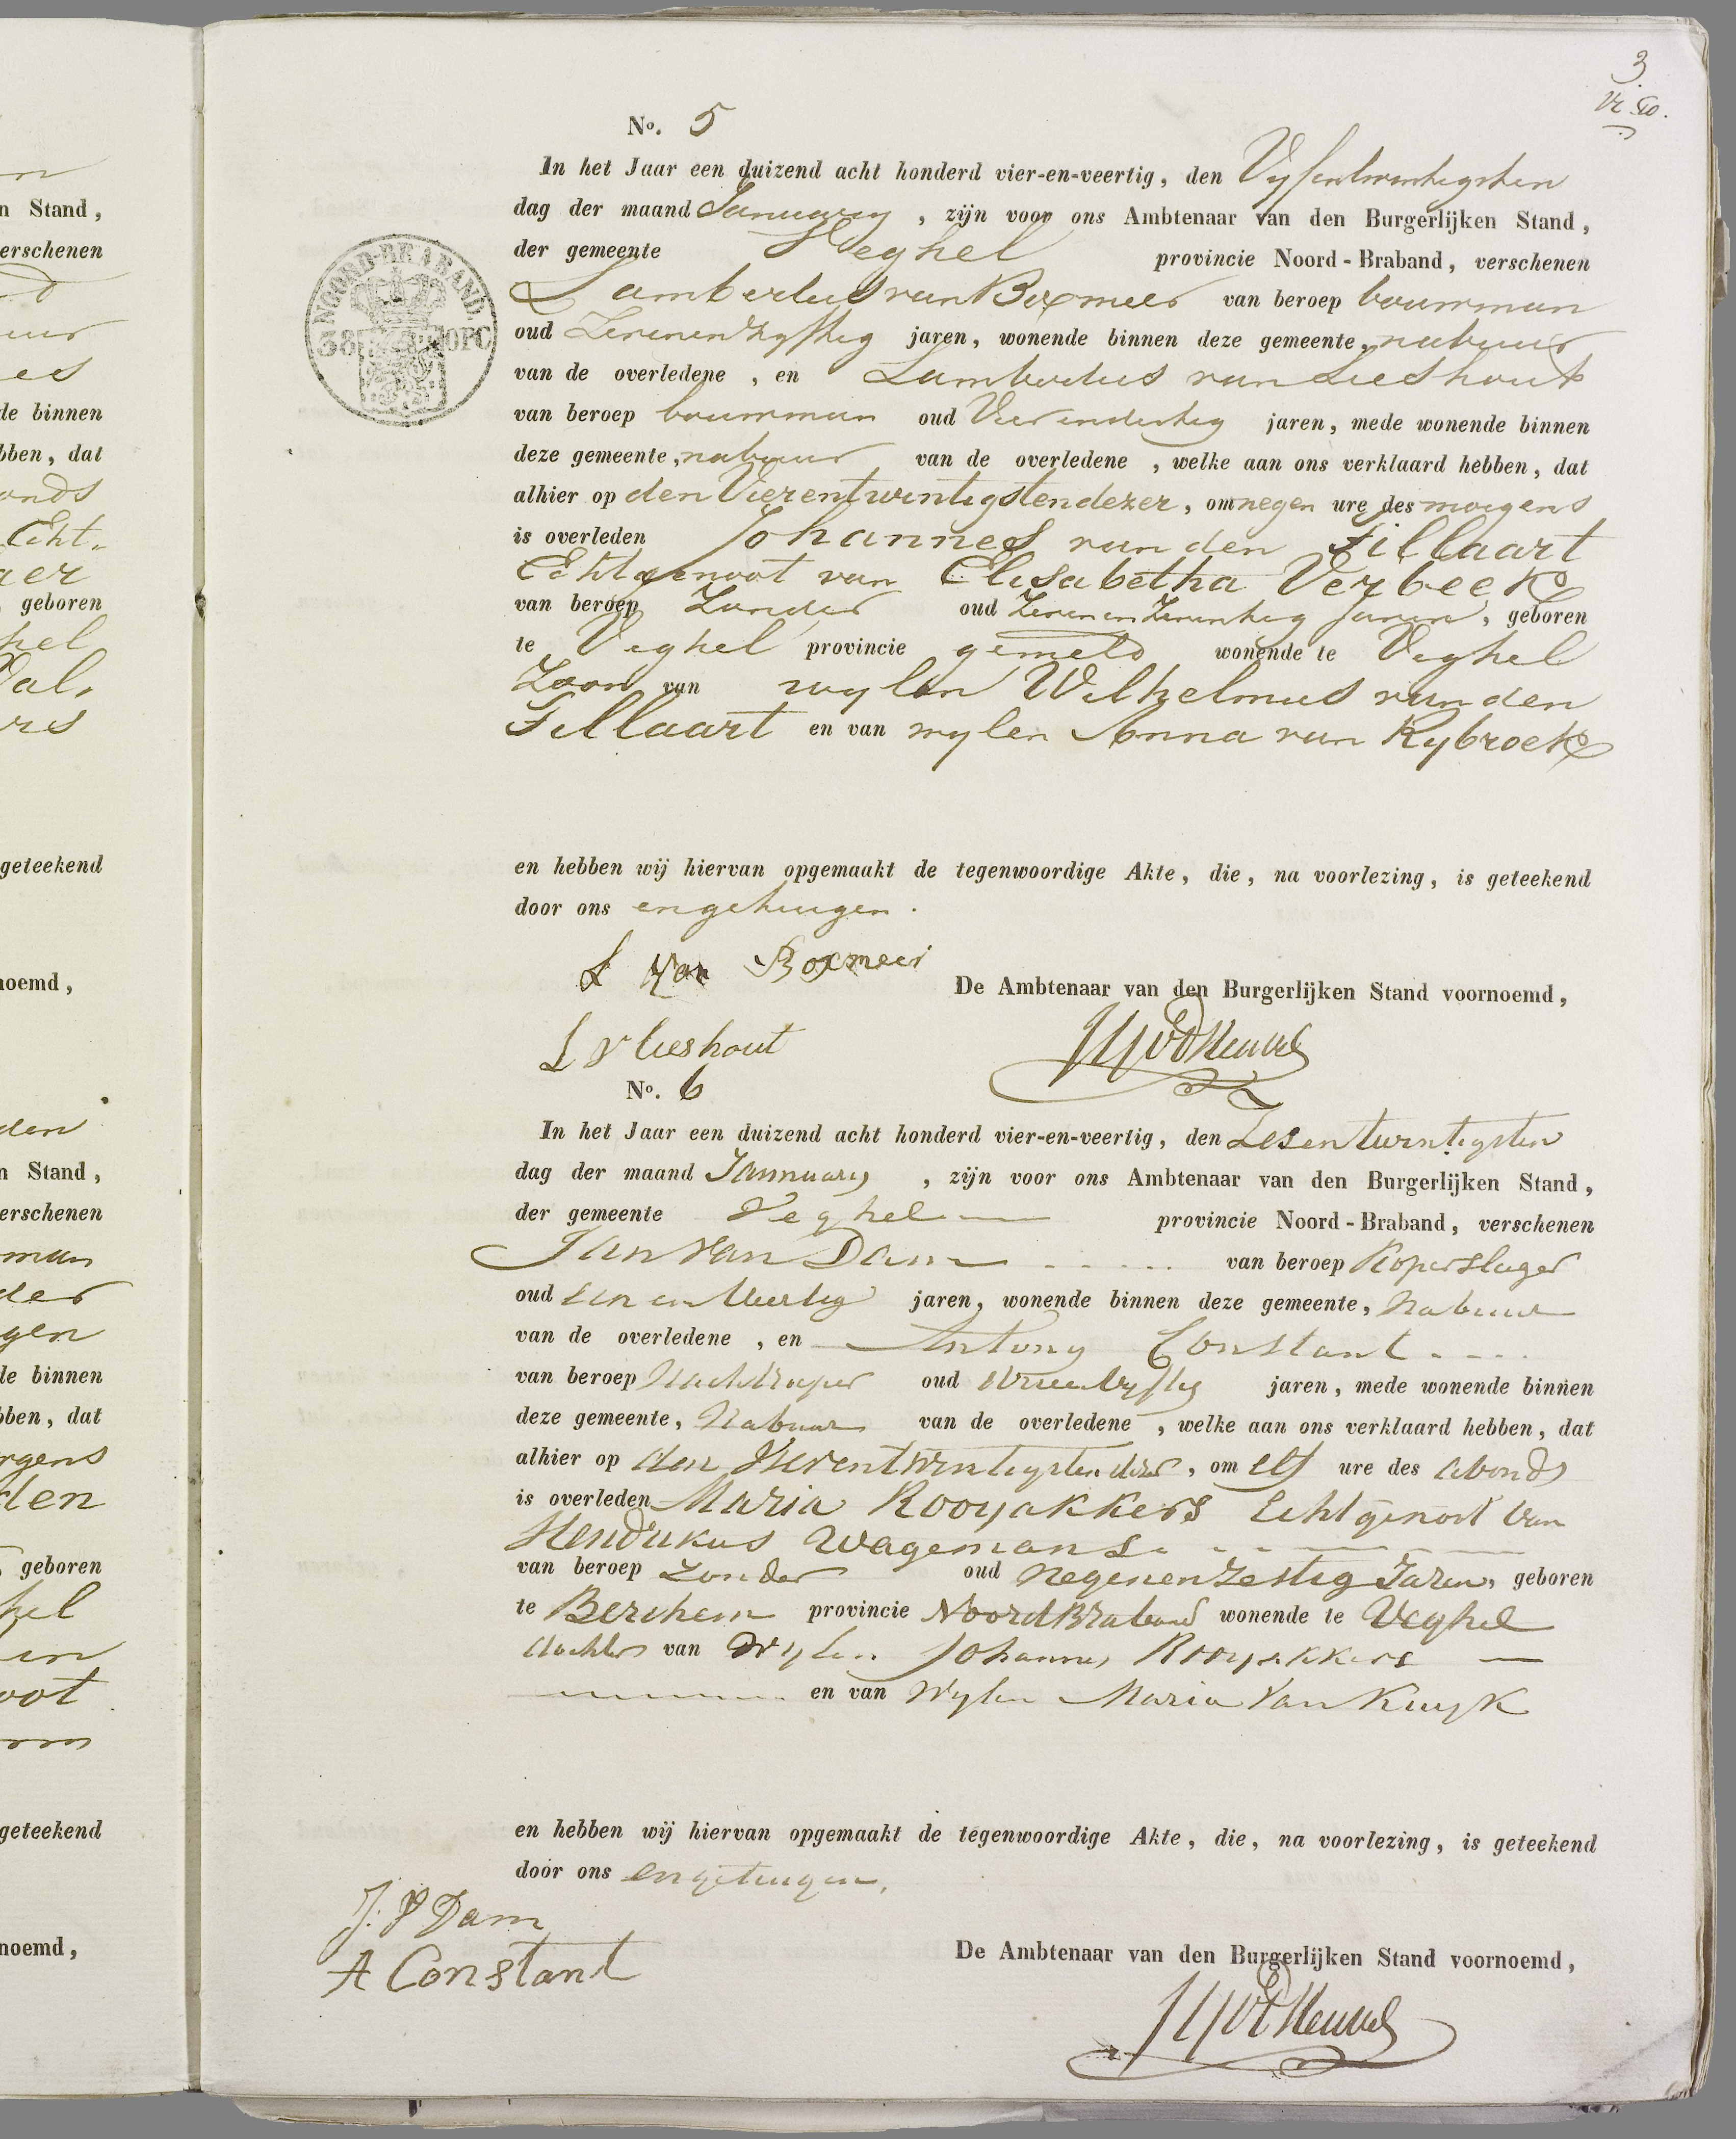 3
N⁰. 5
In het Jaar een duizend acht honderd vier-en-veertig, den Vyfentwintigsten
dag der maand January , zijn voor ons Ambtenaar van den Burgerlijken Stand,
der gemeente Veghel provincie Noord-Braband, verschenen
Lambertus van Boxmeer van beroep bouwman
oud Zevenenvyftig jaren, wonende binnen deze gemeente, nabuur
van de overledene , en Lambertus van Lieshout
van beroep bouwman oud Vierendertig jaren, mede wonende binnen
deze gemeente, nabuur van de overledene , welke aan ons verklaard hebben, dat
alhier op den Vierentwintigsten dezer, om negen ure des morgens
is overleden Johannes van den Tillaart
Echtgenoot van Elisabetha Verbeek
van beroep Zonder oud Zevenenzeventig Jaren, geboren
te Veghel provincie gemeld wonende te Veghel
Zoon van wylen Wilhelmus van den
Tillaart en van wylen Anna van Rybroek
en hebben wij hiervan opgemaakt de tegenwoordige Akte, die, na voorlezing, is geteekend
door ons en getuigen.
L Van Boxmeer
De Ambtenaar van den Burgerlijken Stand voornoemd,
L v lieshout
vd Heuvel
N⁰. 6
In het Jaar een duizend acht honderd vier-en-veertig, den Zesentwintigsten
dag der maand January , zijn voor ons Ambtenaar van den Burgerlijken Stand,
der gemeente Veghel provincie Noord-Braband, verschenen
Jan van Dam van beroep Koperslager
oud een en Veertig jaren, wonende binnen deze gemeente, Nabuur
van de overledene , en Antony Constant
van beroep Nachtroeper oud jaren, mede wonende binnen
deze gemeente, Nabuur van de overledene , welke aan ons verklaard hebben, dat
alhier op den dezer, om elf ure des avonds
is overleden Maria Rooyakkers Echtgenoot van
Hendrikus Wagemans
van beroep Zonder oud Negenenzestig Jaren, geboren
te Berchem provincie Noord Braband wonende te Veghel
dochter van Wylen Johannes Rooyakkers
en van Wylen Maria Van Kuyk
en hebben wij hiervan opgemaakt de tegenwoordige Akte, die, na voorlezing, is geteekend
door ons en getuigen.
J. V Dam
A Constant
De Ambtenaar van den Burgerlijken Stand voornoemd,
vd Heuvel
NOORD-BRABAND.
38 OPC
n Stand,
erschenen
de binnen
bben, dat
Echt-
geboren
geteekend
noemd,
den
n Stand,
erschenen
man
gen
de binnen
bben, dat
rgens
den
geboren
hel
oot
geteekend
noemd,